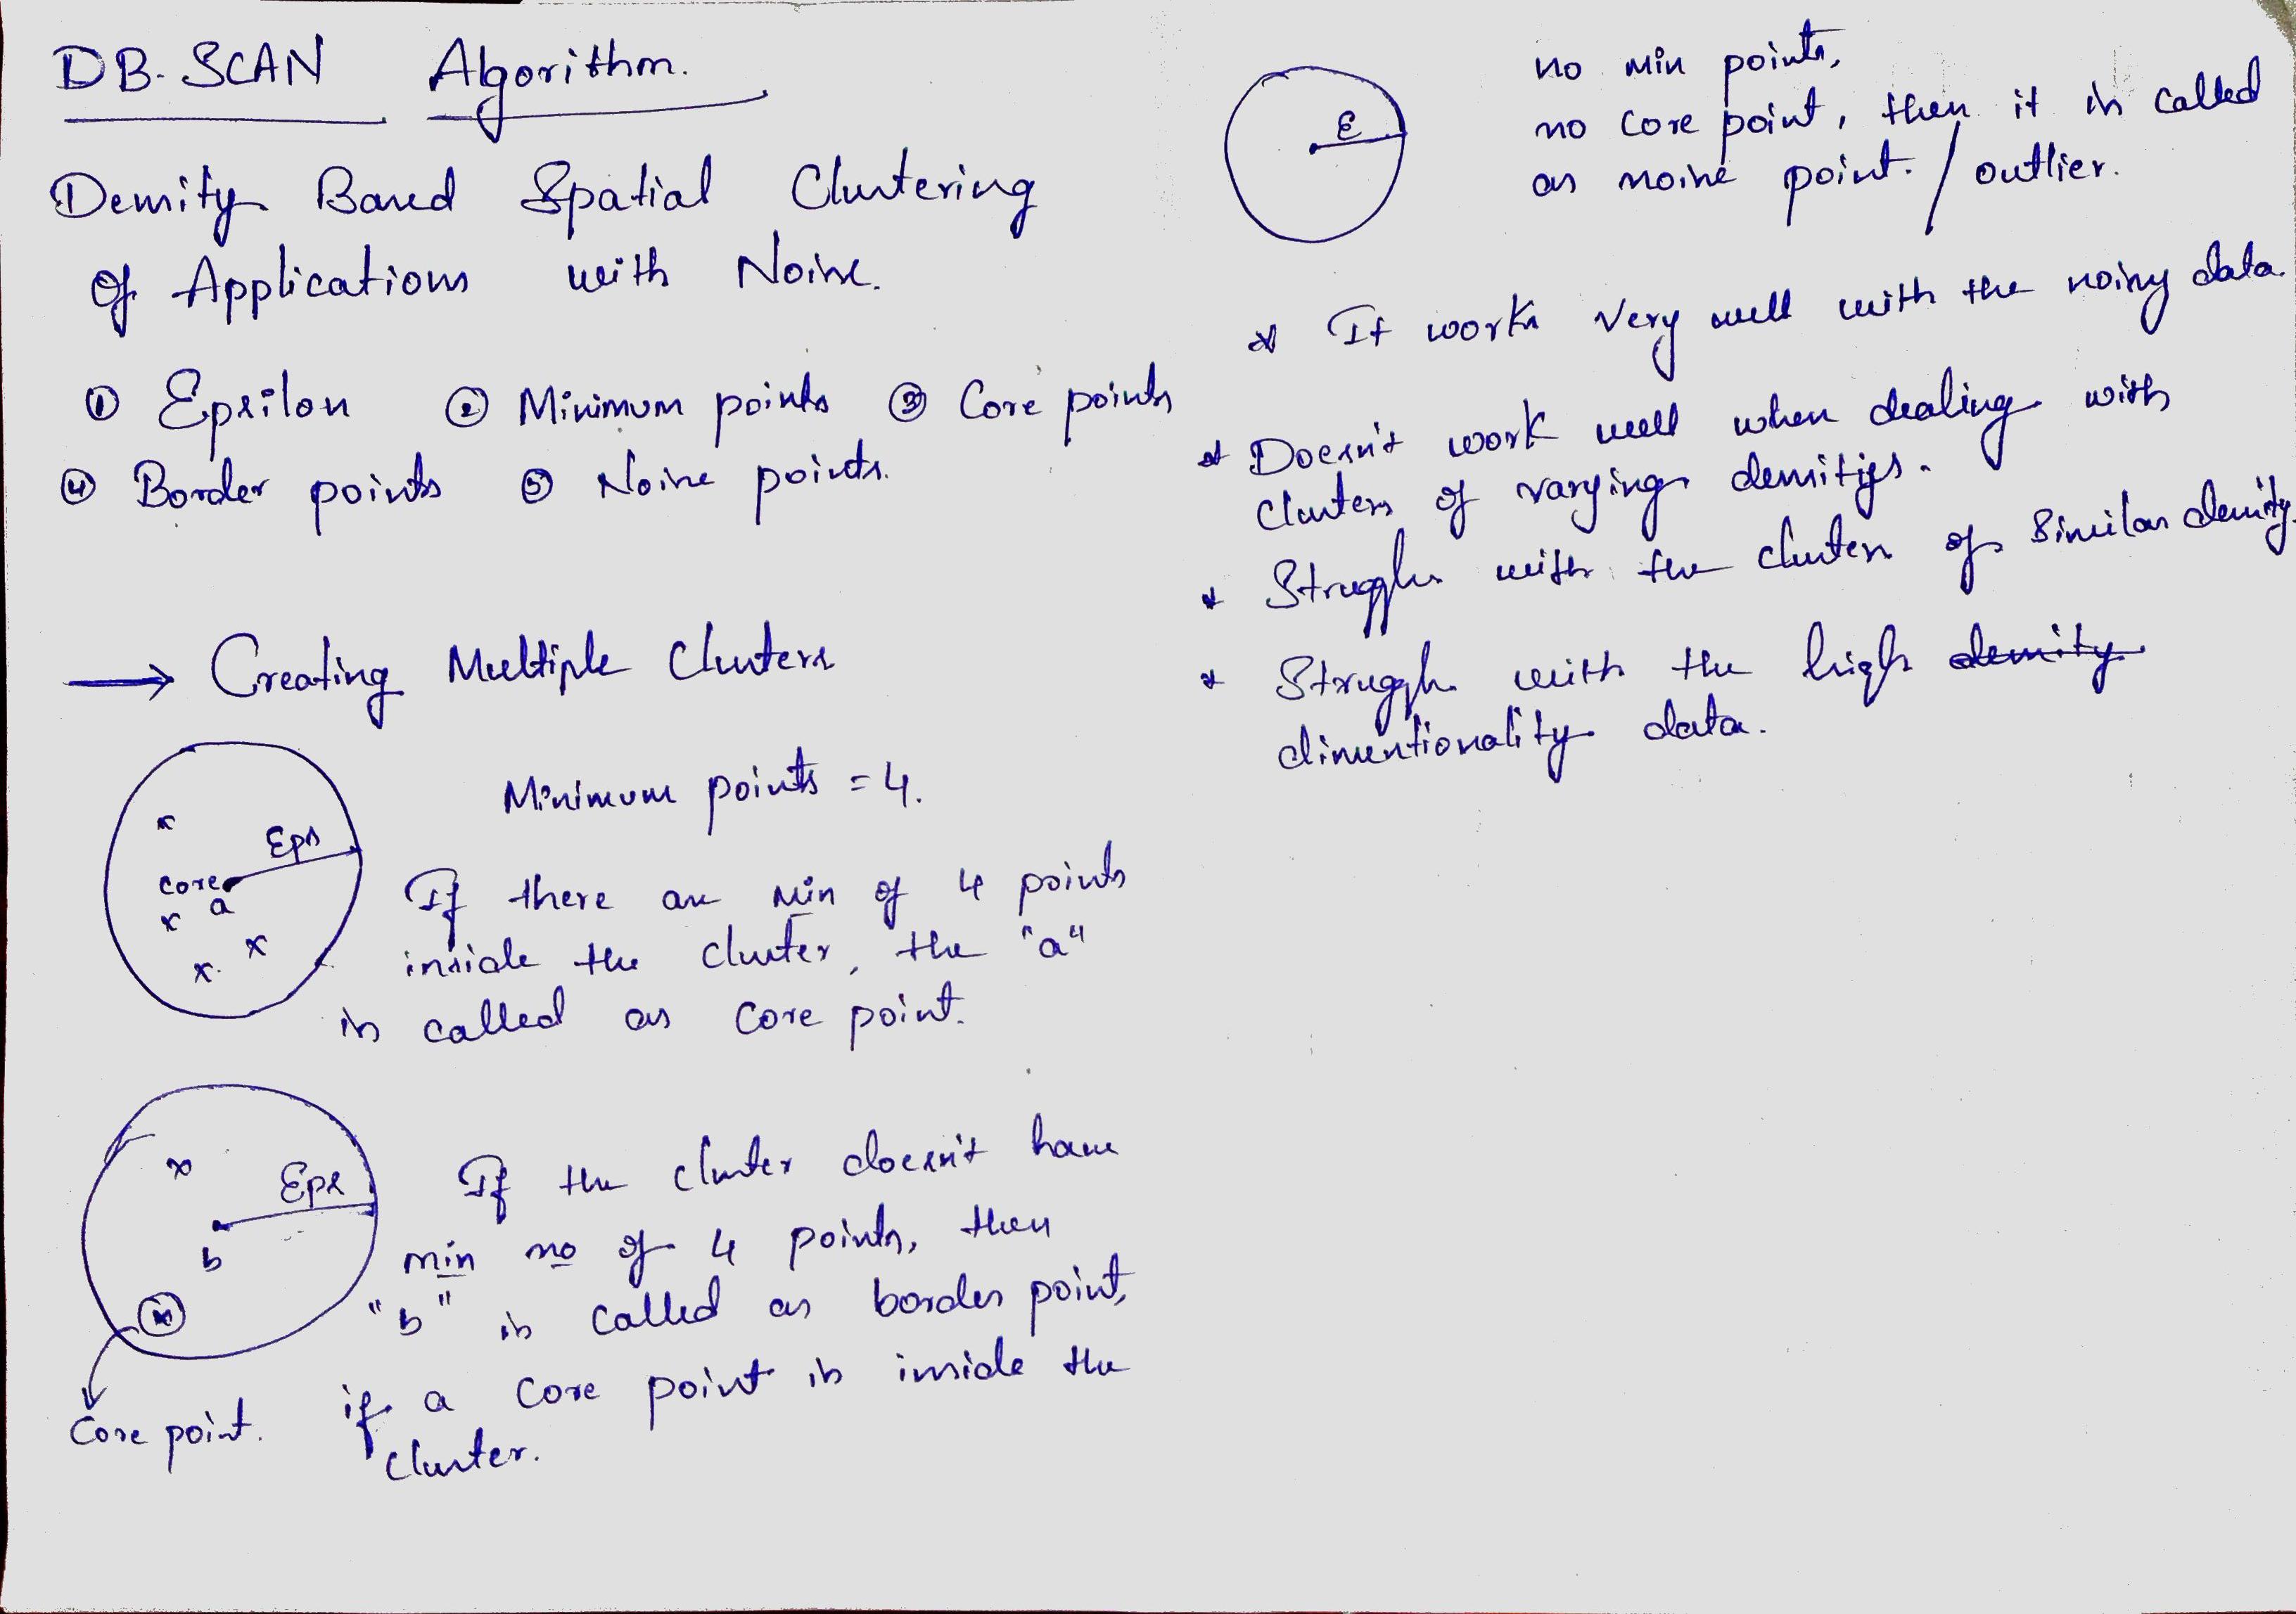 DB-SCAN Algorithm.
Density Based Spatial Clustering
of Applications with Noise.
① Epsilon ② Minimum points ③ Core points
④ Border points ⑤ Noise points.
→ Creating Multiple Clusters
Minimum points = 4.
x
Eps
core
a
x
x
x
If there are min of 4 points
inside the cluster, the "a"
is called as core point.
x
Eps
b
x
Core point.
If the cluster doesn't have
min no of 4 points, then
"b" is called as border point,
if a core point is inside the
cluster.
ε
no min points,
no core point, then it is called
as noise point. / outlier.
* It works very well with the noisy data.
* Doesn't work well when dealing with
clusters of varying densities.
* Struggles with the clusters of similar density.
* Struggles with the high density
dimentionality data.